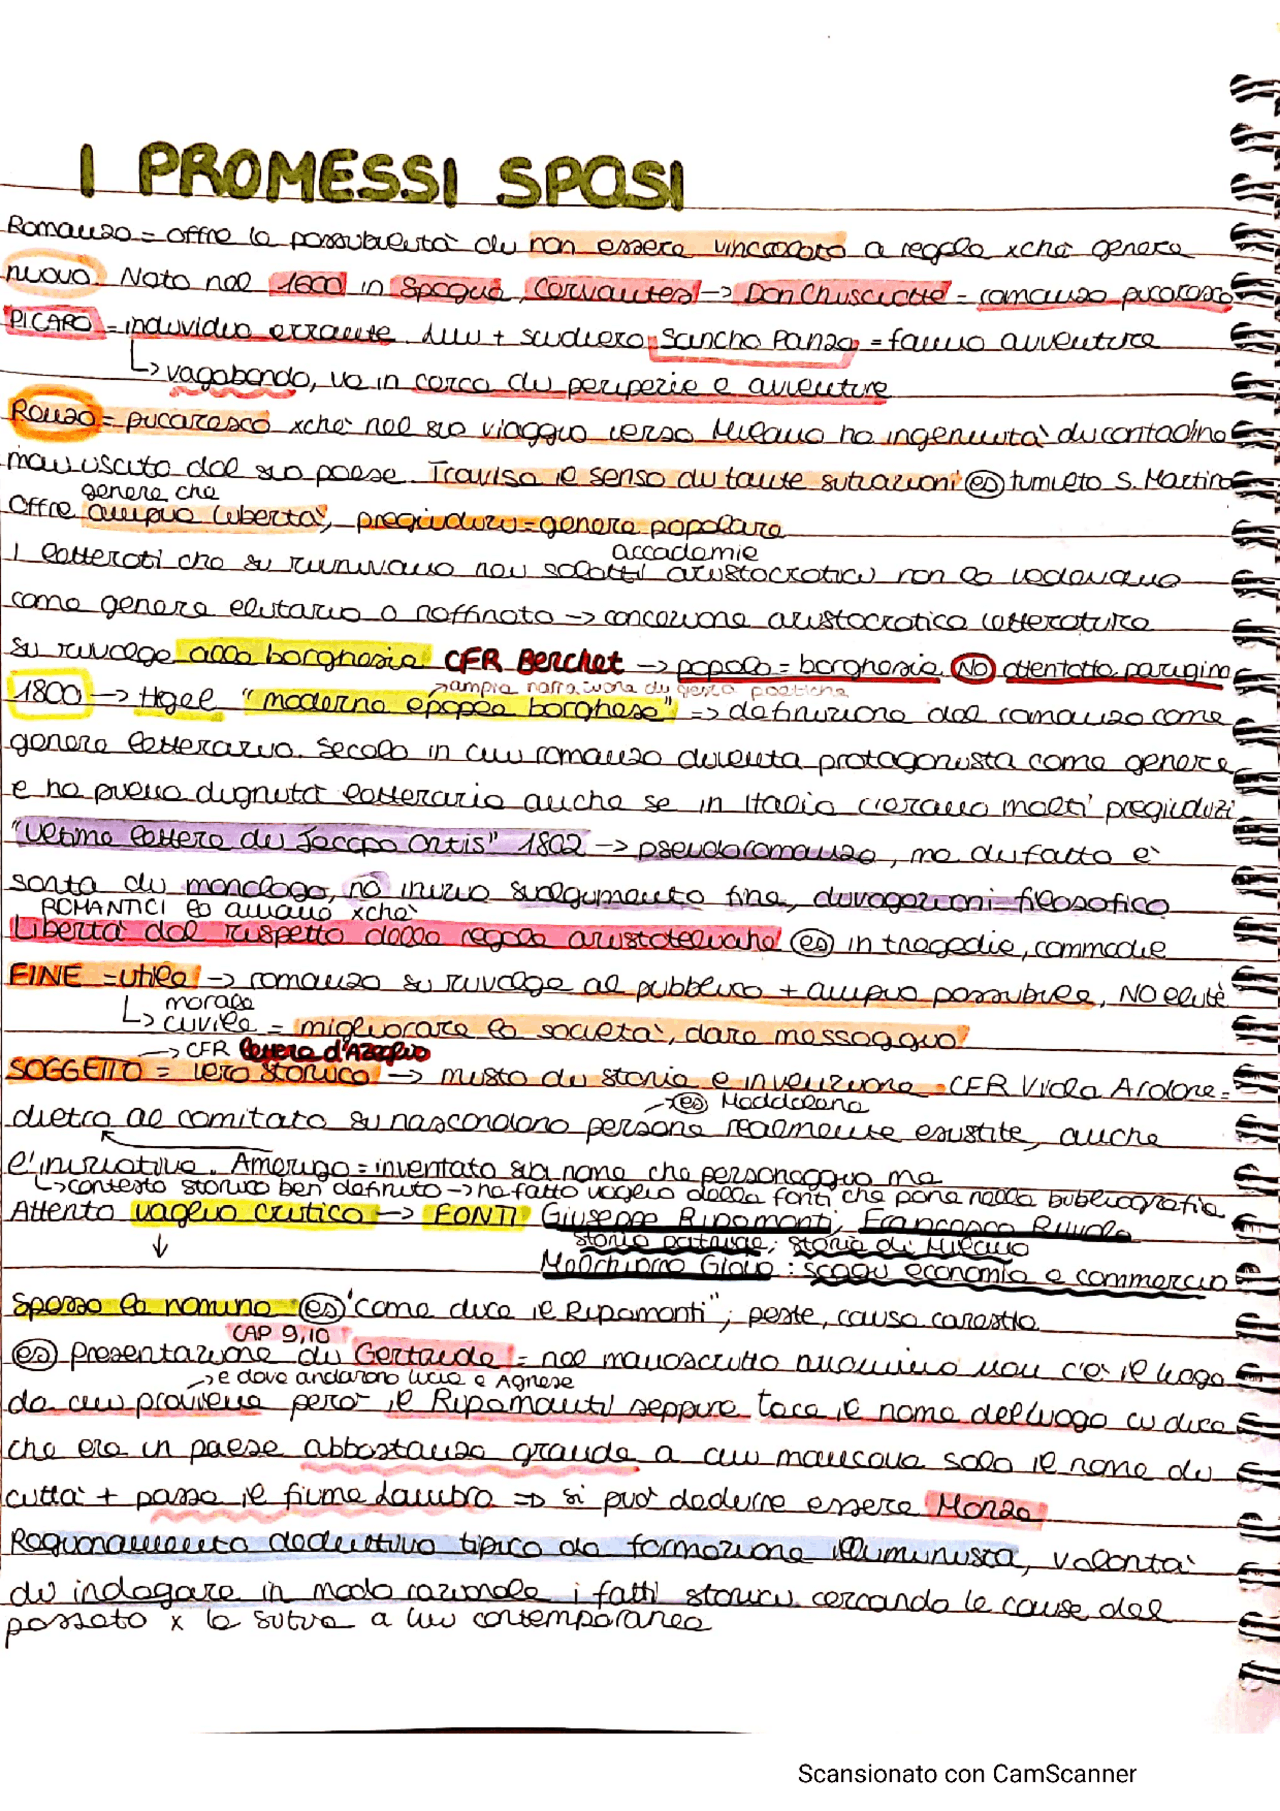 I PROMESSI SPOSI
Romanzo = offre la possibilità di non essere vincolato a regole xchè genere
nuovo. Nato nel 1600 in Spagna, Cervantes → Don Chisciotte = romanzo picaresco
PICARO = individuo errante. Lui + scudiero Sancho Panza = fanno avventure
↳ vagabondo, va in cerca di peripezie e avventure
Renzo = picaresco xchè nel suo viaggio verso Milano ha ingenuità di contadino
mai uscito dal suo paese. Travisa il senso di tante situazioni es tumulto S. Martino
genere che
Offre ampia libertà, pregiudizi = genere popolare
accademie
I letterati che si riunivano nei salotti aristocratici non lo vedevano
come genere elitario o raffinato → concezione aristocratica letteratura
Si rivolge alla borghesia CFR Berchet → popolo = borghesia NO attentotto, parigino
→ ampia narrazione di gesta poetiche
1800 → Hgel "moderna epopea borghese" => definizione del romanzo come
genere letterario. Secolo in cui romanzo diventa protagonista come genere
e ha piena dignità letteraria anche se in Italia c'erano molti pregiudizi
"Ultime lettere di Jacopo Ortis" 1802 → pseudoromanzo, ma di fatto è
sorta di monologo, no inizio svolgimento fine, divagazioni filosofico
ROMANTICI lo amano xchè
Libertà dal rispetto delle regole aristoteliche es in tragedie, commedie
FINE = utile → romanzo si rivolge al pubblico + ampio possibile, NO elitè
morale
↳ civile = migliorare la società, dare messaggio
→ CFR lettera d'Azeglio
SOGGETTO = vero storico → misto di storia e invenzione CFR Viola Ardone =
→ es Maddalena
dietro al comitato si nascondono persone realmente esistite, anche
l'iniziativa. Amerigo = inventato sia nome che personaggio ma
↳ contesto storico ben definito → ha fatto vaglio delle fonti che pone nella bibliografia
Attento vaglio critico → FONTI Giuseppe Ripamonti, Francesco Rivola
storia patriae; storia di Milano
Melchiorre Gioia: saggi economia e commercio
Spesso lo nomina es "come dice il Ripamonti"; peste, causa carestia
CAP 9,10
es presentazione di Gertrude = nel manoscritto anonimo non c'è il luogo
→ e dove andarono Lucia e Agnese
da cui proviene però il Ripamonti seppure tace il nome del luogo ci dice
che era in paese abbastanza grande a cui mancava solo il nome di
città + passa il fiume Lambro => si può dedurre essere Monza
Ragionamento deduttivo tipico da formazione illuminista, volontà
di indagare in modo razionale i fatti storici cercando le cause del
passato x la sutva a lui contemporanea
Scansionato con CamScanner